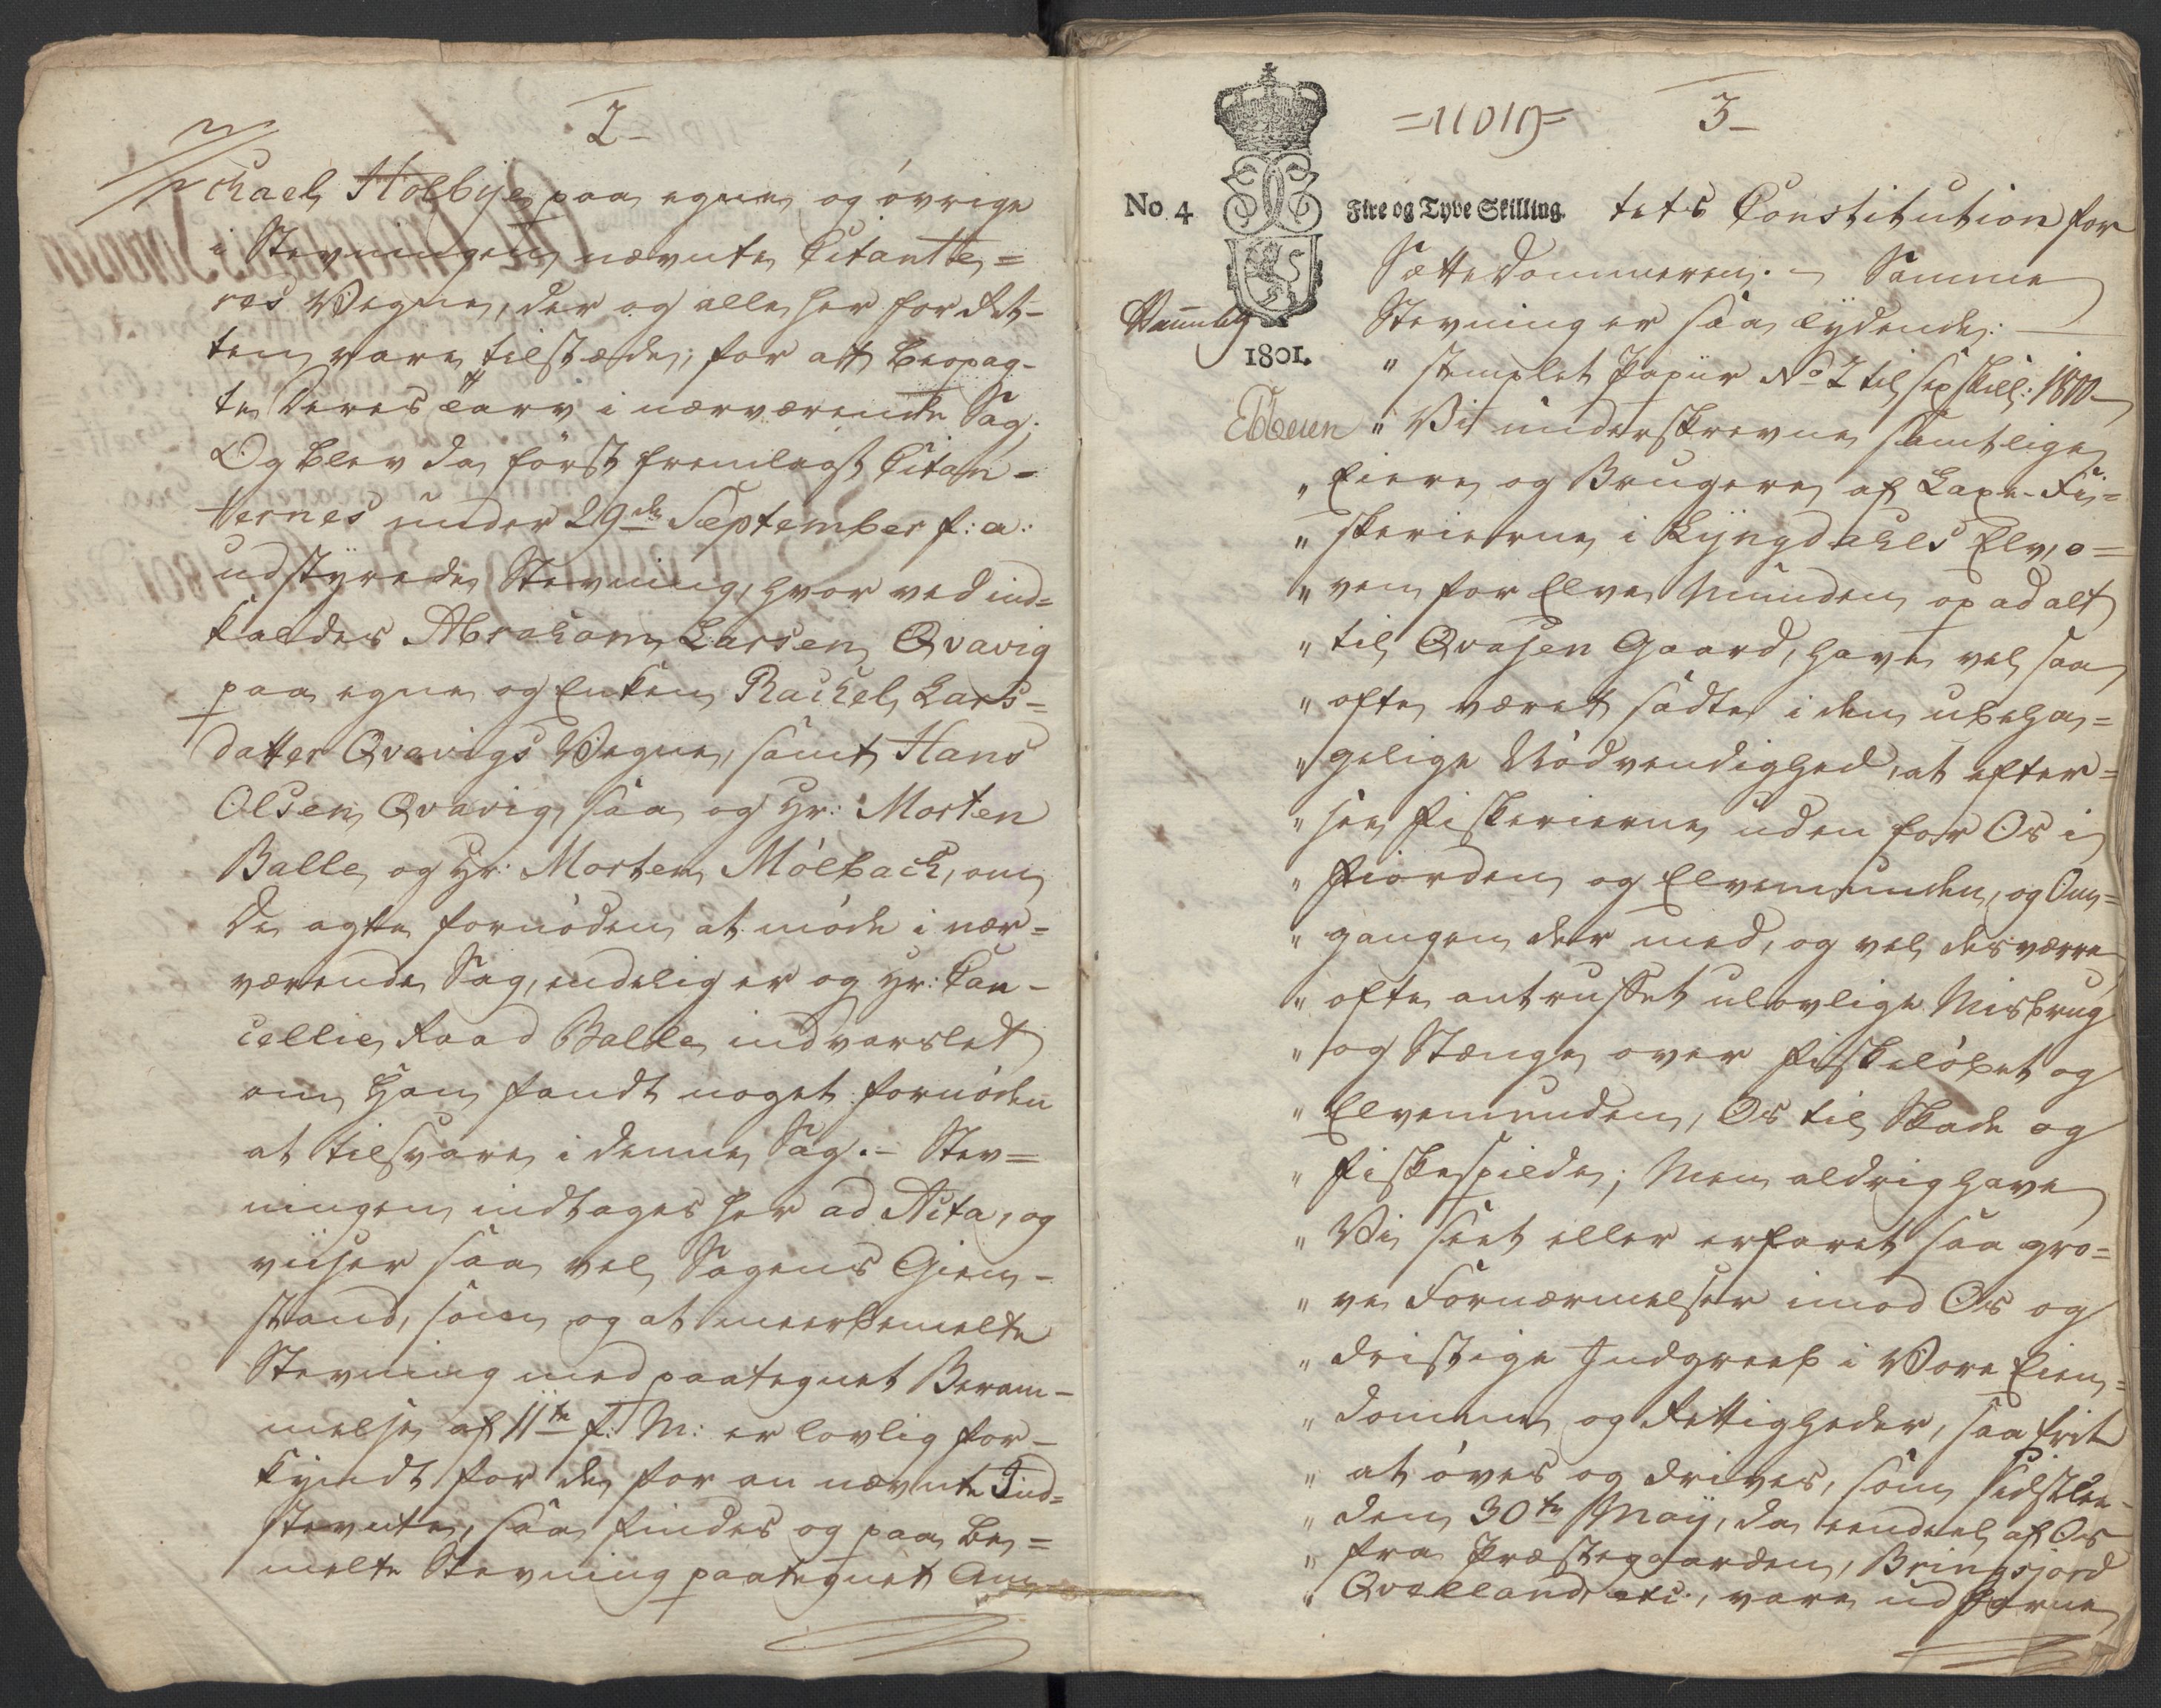 2
chael Holbye paa egne og övrige
i Stevningen nævnte Citantte=
res Vegne, der og alle her for Ret-
ten vare tilstæde; for att beopag-
te deres Tarv i nærværende Sag;
Og blev da först fremlagt Citan=
ternes under 29de September f: a:
udstyrede Stevning, hvor ved ind=
kaldes Abraham Larsen Qvavig
paa egne og Enken Rachel Lars=
datter Qvavigs Vegne, samt Hans
Olsen Qvavig, saa og Hr: Morten
Balle og Hr: Morten Mölbach, om
De agte fornöden at möde i nær=
værende Sag, endelig er og Hr: Can-
cellie Raad Balle indvarslet
om Han fandt noget fornöden
at tilsvare i denne Sag.- Stev=
ningen indtages her ad Acta, og
viiser saa vel Sagens Gien-
stand, som og at meerbemelte
Stevning med paategnet Beram-
melse af 11te f: M: er lovlig for-
kyndt for de for an nævnte Ind=
stevnte, saa findes og paa be=
melte Stevning paategnet Am
3
No. 4
Fire og Tyve Skilling.
1801.
tets Constitution for
Sættedommeren. - Samme
Stevning er saa lydende:
" stemplet Papiir No 2 til sex skill: 1800-
" Vi underskrevne samtlige
" Eiere og Brugere af Laxe-Fi=
" skerierne i Lyngdahls Elv, o=
" ven for Elve Munden op ad alt
" til Qvasen Gaard, have vel saa
" ofte været sadte i den ubeha=
" gelige Nödvendighed, at efter=
" see Fiskerierne uden for Os i
" Fiorden og Elvemunden, og Om=
" gangen der med, og vel desværre
" ofte antruffet ulovlige Misbrug
" og Stænge over Fiskelöbet og
" Elvemunden, Os til Skade og
" Fiskespilde; Men aldrig have
" Vi seet eller erfaret saa gro=
" ve Fornærmelser imod Os og
" dristige Indgreeb i Vore Eien=
" domme og Rettigheder, saa frit
" at öves og drives, som sidstlee-
" den 30te May, da eendeel af Os
" fra Præstegaarden, Bringsjord
" Qvelland etc:, vare ud farne